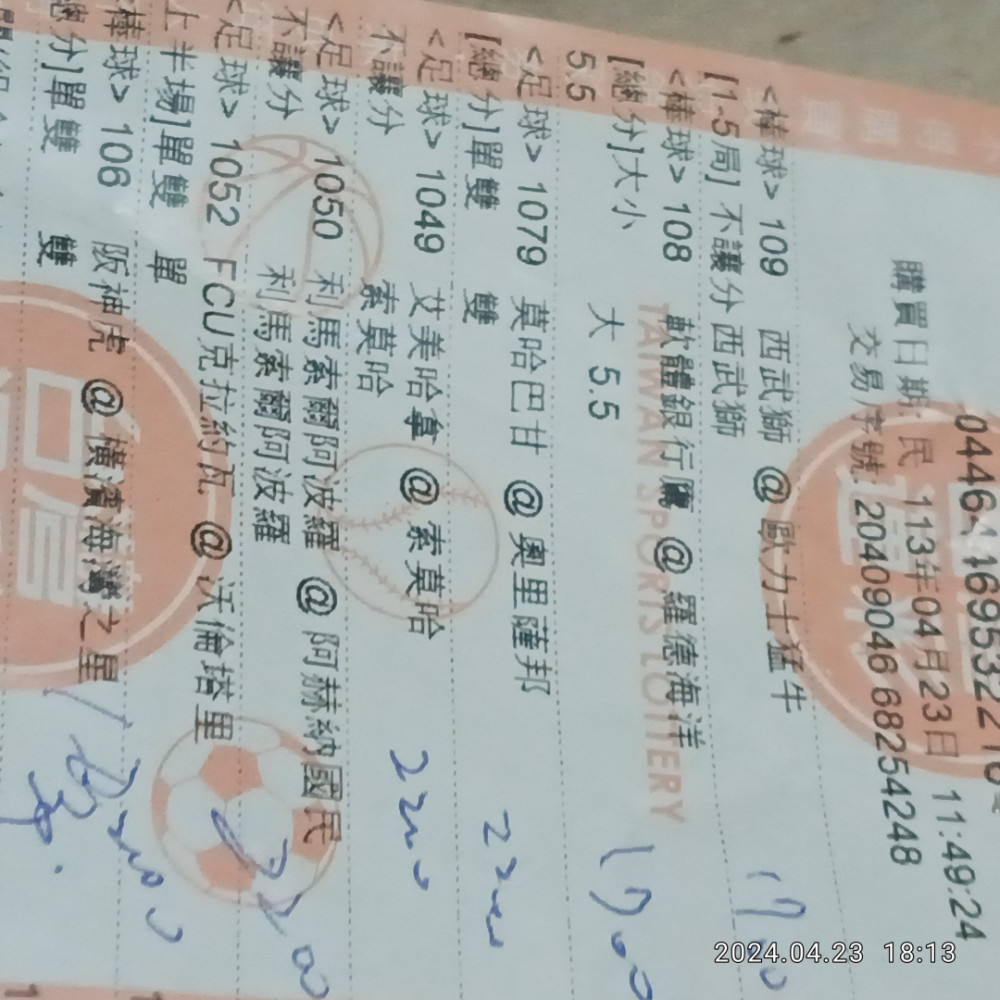 購買日期:民 113年04月23日 11:49:24
交易序號: 20409046 68254248
<棒球> 109 西武獅 @ 歐力士猛牛
[1-5局] 不讓分 西武獅
1700
<棒球> 108 軟體銀行鷹 @ 羅德海洋
[總分]大小 大 5.5
5.5
1700
<足球> 1079 莫哈巴甘 @ 奧里薩邦
[總分]單雙 雙
<足球> 1049 艾美哈拿 @ 索莫哈
不讓分 索莫哈
<足球> 1050 利馬索爾阿波羅 @ 阿赫納國民
不讓分 利馬索爾阿波羅
<足球> 1052 FCU克拉約瓦 @ 沃倫塔里
上半場]單雙 單
棒球> 106 阪神虎 @ 橫濱海灣之星
總分]單雙 雙
TAIWAN SPORTS LOTTERY
2024.04.23 18:13